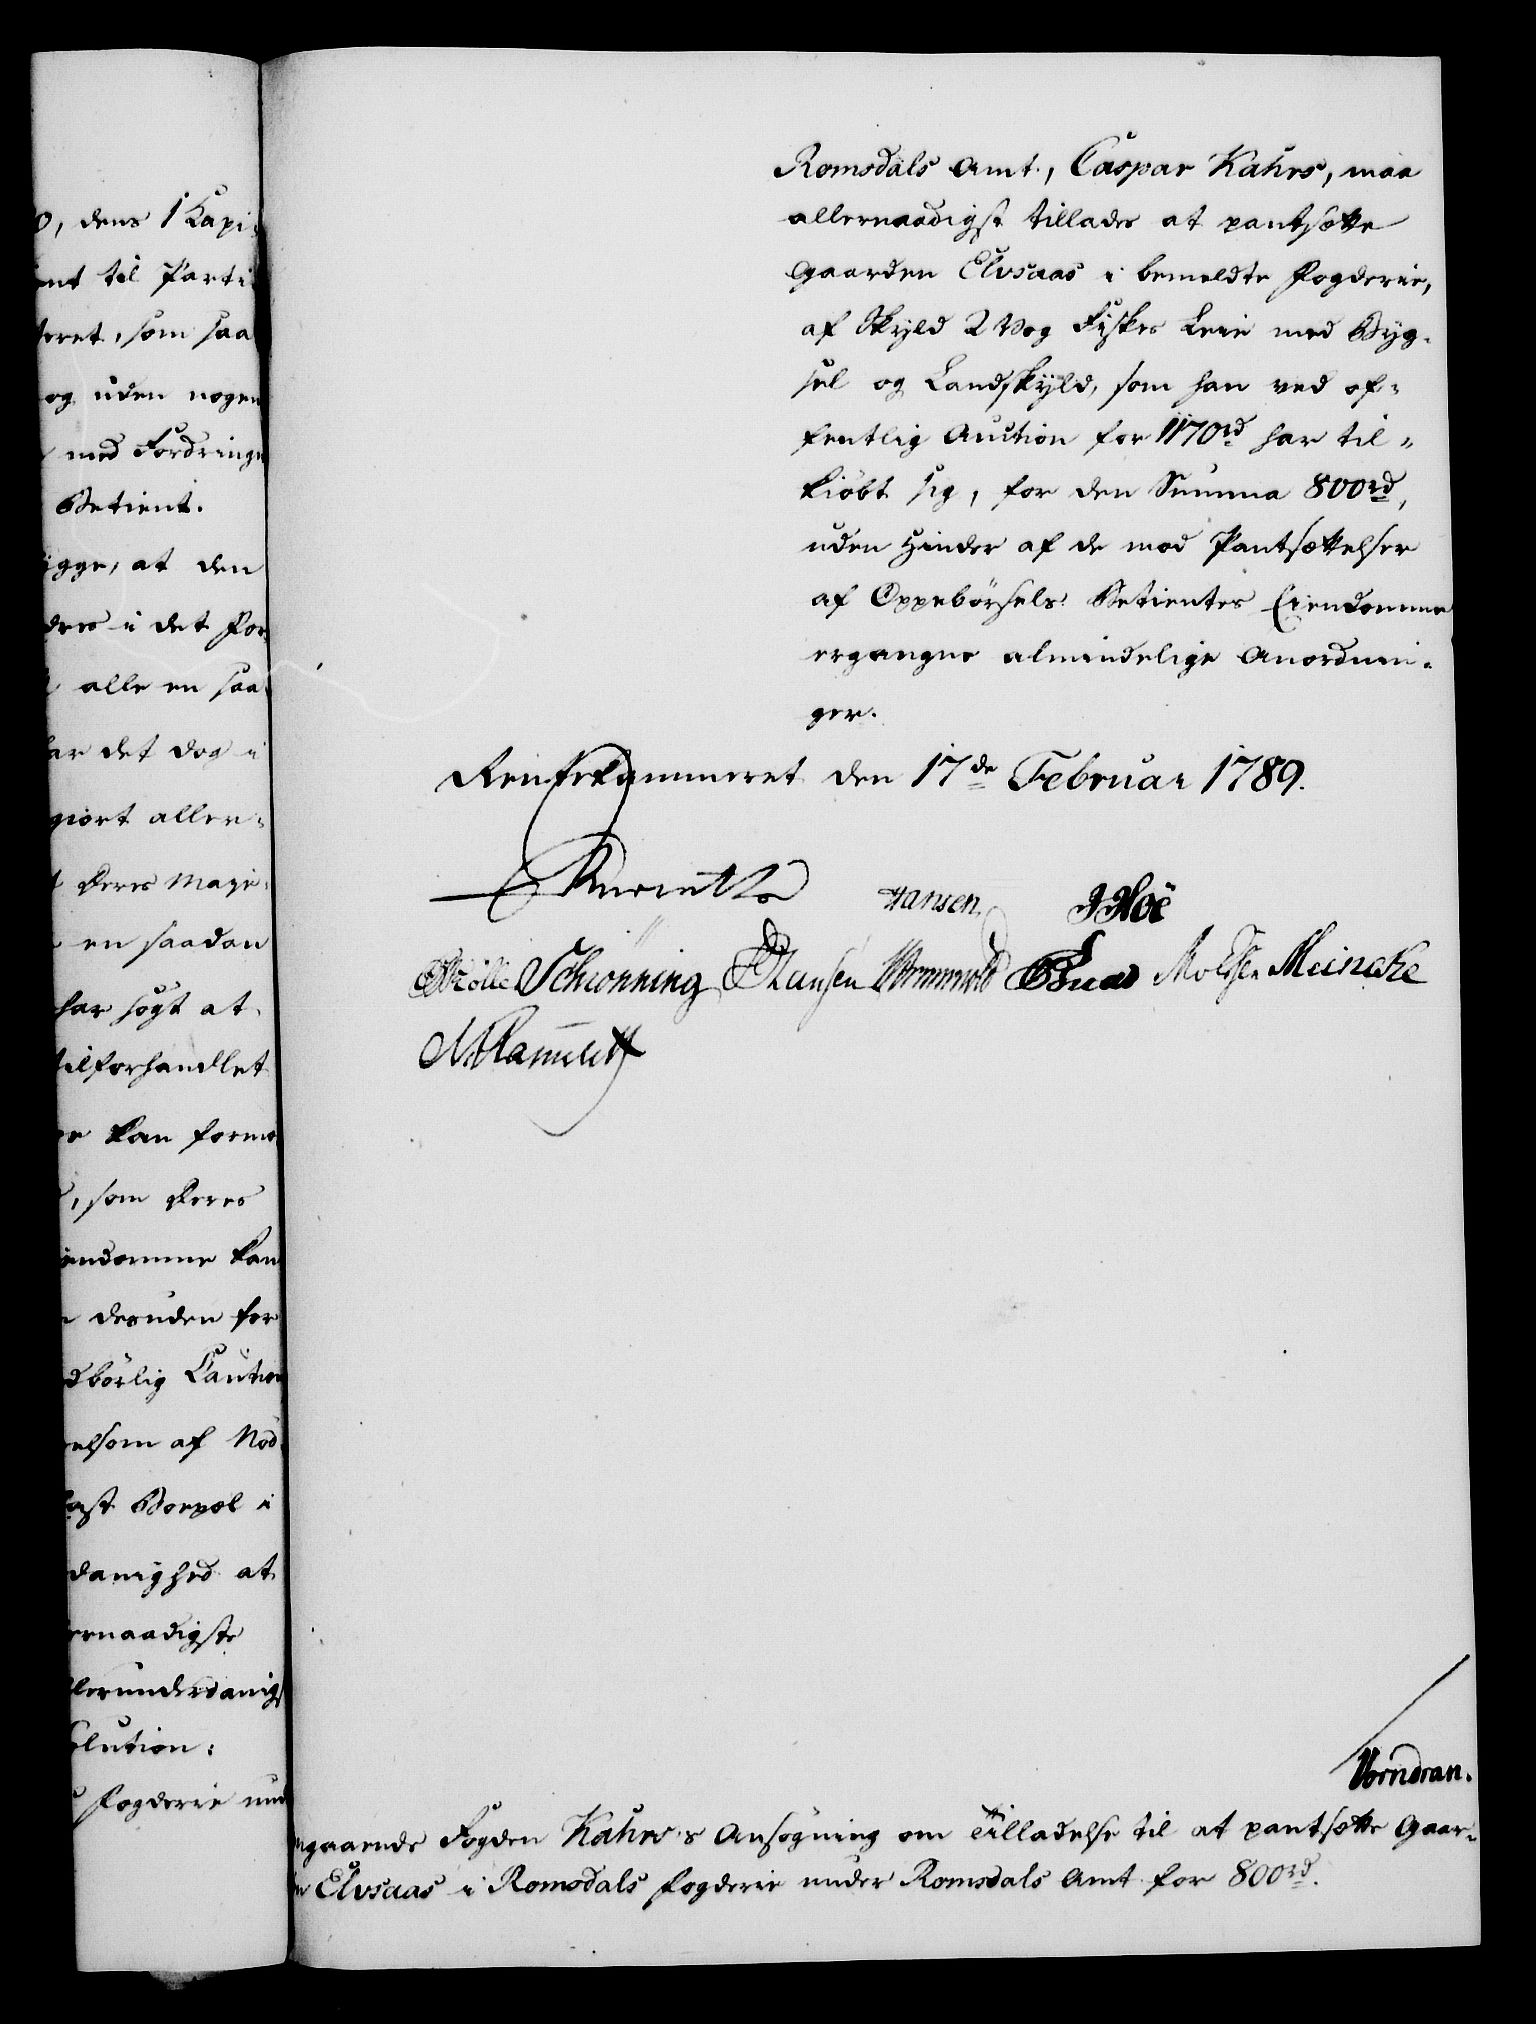 dens 1 Kapi-
til Parti
som saa
og uden nogen
med Fordringe
Betient.
at den
i det For
alle en saa
det dog i
giort aller-
Deres Maje-
en saadan
har søgt at
tilforhandlet
kan forme
som Deres
endomme kan
desuden for
Caution
af Nød-
i
at
Fogderie
Romsdals Amt, Caspar Kahrs, maa
allernaadigst tillades at pantsætte
Gaarden Elvsaas i bemeldte Fogderie,
af Skyld 2 Vog Fiskes Leie med Byg-
sel og Landskyld, som han ved of-
fentlig Auction for 1170rd har til-
kiøbt sig, for den Summa 800rd,
uden Hinder af de mod Pantsættelser
af Oppebørsels Betientes Eiendomme
ergangne almindelige Anordnin-
ger.
Rentekammeret den 17de Februar 1789.
Hansen
Schrönning Hansen Meincke
Vorndran.
ngaaende Fogden Kahrs's Ansøgning om Tilladelse til at pantsætte Gaar-
Elvsaas i Romsdals Fogderie under Romsdals Amt for 800rd.